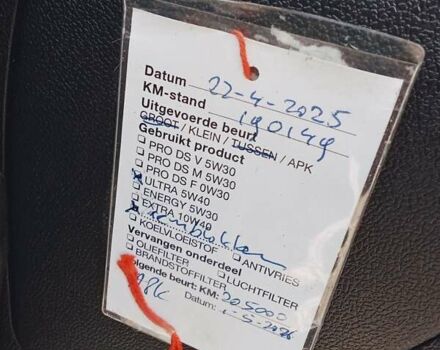 Datum 22-4-2025
KM-stand 190149
Uitgevoerde beurt
GROOT / KLEIN / TUSSEN / APK
Gebruikt product
PRO DS V 5W30
PRO DS M 5W30
PRO DS F 0W30
ULTRA 5W40
ENERGY 5W30
EXTRA 10W40
KOELVLOEISTOF ANTIVRIES
Vervangen onderdeel
OLIEFILTER LUCHTFILTER
BRANDSTOFFILTER
Volgende beurt: KM: 205000
Datum: 1-5-2026